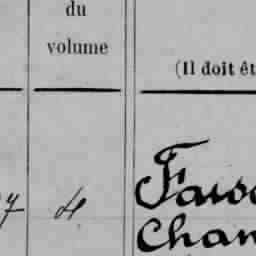 du
volume
(Il doit êt
7 4 Faus
Chan